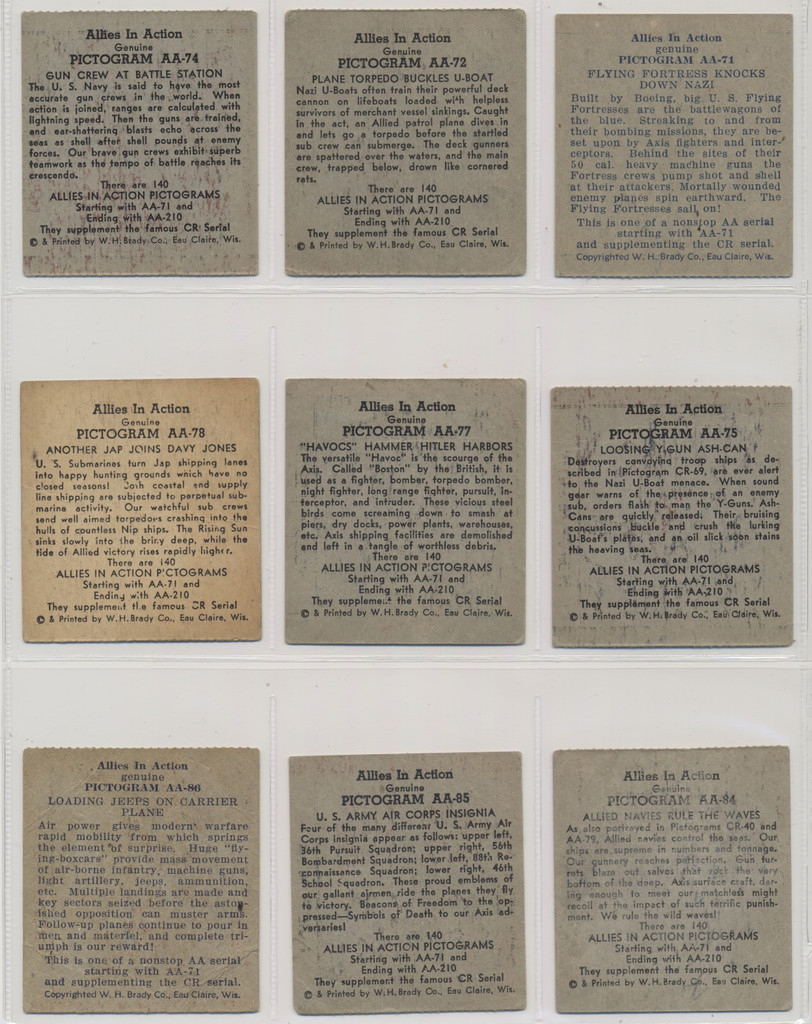 Allies In Action
Genuine
PICTOGRAM AA-74
GUN CREW AT BATTLE STATION
The U. S. Navy is said to have the most
accurate gun crews in the world. When
action is joined, ranges are calculated with
lightning speed. Then the guns are trained,
and ear-shattering blasts echo across the
seas as shell after shell pounds at enemy
forces. Our brave gun crews exhibit superb
teamwork as the tempo of battle reaches its
crescendo.
There are 140
ALLIES IN ACTION PICTOGRAMS
Starting with AA-71 and
Ending with AA-210
They supplement the famous CR Serial
© & Printed by W. H. Brady Co., Eau Claire, Wis.
Allies In Action
Genuine
PICTOGRAM AA-72
PLANE TORPEDO BUCKLES U-BOAT
Nazi U-Boats often train their powerful deck
cannon on lifeboats loaded with helpless
survivors of merchant vessel sinkings. Caught
in the act, an Allied patrol plane dives in
and lets go a torpedo before the startled
sub crew can submerge. The deck gunners
are spattered over the waters, and the main
crew, trapped below, drown like cornered
rats.
There are 140
ALLIES IN ACTION PICTOGRAMS
Starting with AA-71 and
Ending with AA-210
They supplement the famous CR Serial
© & Printed by W. H. Brady Co., Eau Claire, Wis.
Allies In Action
genuine
PICTOGRAM AA-71
FLYING FORTRESS KNOCKS
DOWN NAZI
Built by Boeing, big U. S. Flying
Fortresses are the battlewagons of
the blue. Streaking to and from
their bombing missions, they are be-
set upon by Axis fighters and inter-
ceptors. Behind the sites of their
50 cal. heavy machine guns the
Fortress crews pump shot and shell
at their attackers. Mortally wounded
enemy planes spin earthward. The
Flying Fortresses sail on!
This is one of a nonstop AA serial
starting with AA-71
and supplementing the CR serial.
Copyrighted W. H. Brady Co., Eau Claire, Wis.
Allies In Action
Genuine
PICTOGRAM AA-78
ANOTHER JAP JOINS DAVY JONES
U. S. Submarines turn Jap shipping lanes
into happy hunting grounds which have no
closed seasons! Both coastal and supply
line shipping are subjected to perpetual sub-
marine activity. Our watchful sub crews
send well aimed torpedoes crashing into the
hulls of countless Nip ships. The Rising Sun
sinks slowly into the briny deep, while the
tide of Allied victory rises rapidly higher.
There are 140
ALLIES IN ACTION PICTOGRAMS
Starting with AA-71 and
Ending with AA-210
They supplement the famous CR Serial
© & Printed by W. H. Brady Co., Eau Claire, Wis.
Allies In Action
Genuine
PICTOGRAM AA-77
"HAVOCS" HAMMER HITLER HARBORS
The versatile "Havoc" is the scourge of the
Axis. Called "Boston" by the British, it is
used as a fighter, bomber, torpedo bomber,
night fighter, long range fighter, pursuit, in-
terceptor, and intruder. These vicious steel
birds come screaming down to smash at
piers, dry docks, power plants, warehouses,
etc. Axis shipping facilities are demolished
and left in a tangle of worthless debris.
There are 140
ALLIES IN ACTION PICTOGRAMS
Starting with AA-71 and
Ending with AA-210
They supplement the famous CR Serial
© & Printed by W. H. Brady Co., Eau Claire, Wis.
Allies In Action
Genuine
PICTOGRAM AA-75
LOOSING Y-GUN ASH-CAN
Destroyers convoying troop ships as de-
scribed in Pictogram CR-69, are ever alert
to the Nazi U-Boat menace. When sound
gear warns of the presence of an enemy
sub, orders flash to man the Y-Guns. Ash-
Cans are quickly released. Their bruising
concussions buckle and crush the lurking
U-Boat's plates, and an oil slick soon stains
the heaving seas.
There are 140
ALLIES IN ACTION PICTOGRAMS
Starting with AA-71 and
Ending with AA-210
They supplement the famous CR Serial
© & Printed by W. H. Brady Co., Eau Claire, Wis.
Allies In Action
genuine
PICTOGRAM AA-86
LOADING JEEPS ON CARRIER
PLANE
Air power gives modern warfare
rapid mobility from which springs
the element of surprise. Huge "fly-
ing-boxcars" provide mass movement
of air-borne infantry, machine guns,
light artillery, jeeps, ammunition,
etc. Multiple landings are made and
key sectors seized before the aston-
ished opposition can muster arms.
Follow-up planes continue to pour in
men and materiel, and complete tri-
umph is our reward!
This is one of a nonstop AA serial
starting with AA-71
and supplementing the CR serial.
Copyrighted W. H. Brady Co., Eau Claire, Wis.
Allies In Action
Genuine
PICTOGRAM AA-85
U. S. ARMY AIR CORPS INSIGNIA
Four of the many different U. S. Army Air
Corps insignia appear as follows: upper left,
36th Pursuit Squadron; upper right, 56th
Bombardment Squadron; lower left, 88th Re-
connaissance Squadron; lower right, 46th
School Squadron. These proud emblems of
our gallant airmen ride the planes they fly
to victory. Beacons of Freedom to the op-
pressed—Symbols of Death to our Axis ad-
versaries!
There are 140
ALLIES IN ACTION PICTOGRAMS
Starting with AA-71 and
Ending with AA-210
They supplement the famous CR Serial
© & Printed by W. H. Brady Co., Eau Claire, Wis.
Allies In Action
Genuine
PICTOGRAM AA-84
ALLIED NAVIES RULE THE WAVES
As also portrayed in Pictograms CR-40 and
AA-79, Allied navies control the seas. Our
ships are supreme in numbers and tonnage.
Our gunnery reaches perfection. Gun tur-
rets blaze out salvos that rock the very
bottom of the deep. Axis surface craft, dar-
ing enough to meet our matchless might
recoil at the impact of such terrific punish-
ment. We rule the wild waves!
There are 140
ALLIES IN ACTION PICTOGRAMS
Starting with AA-71 and
Ending with AA-210
They supplement the famous CR Serial
© & Printed by W. H. Brady Co., Eau Claire, Wis.